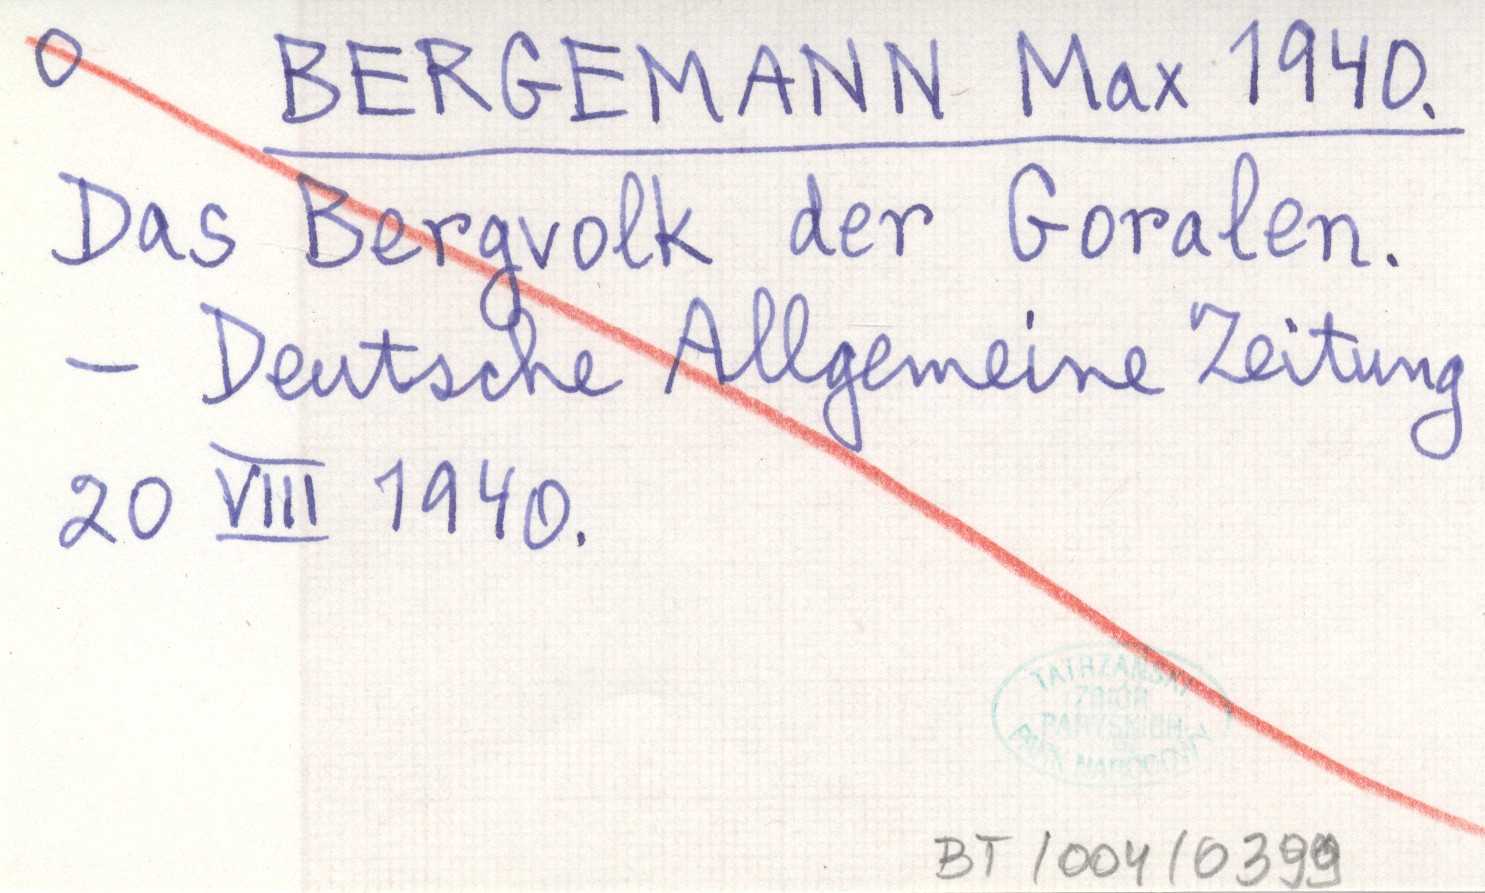 O BERGEMANN Max 1940.
Das Bergvolk der Goralen.
– Deutsche Allgemeine Zeitung
20 VIII 1940.
TATRZAŃSKI
ZBIÓR
PARYSKICH
PARK NARODOWY
BT/004/0399